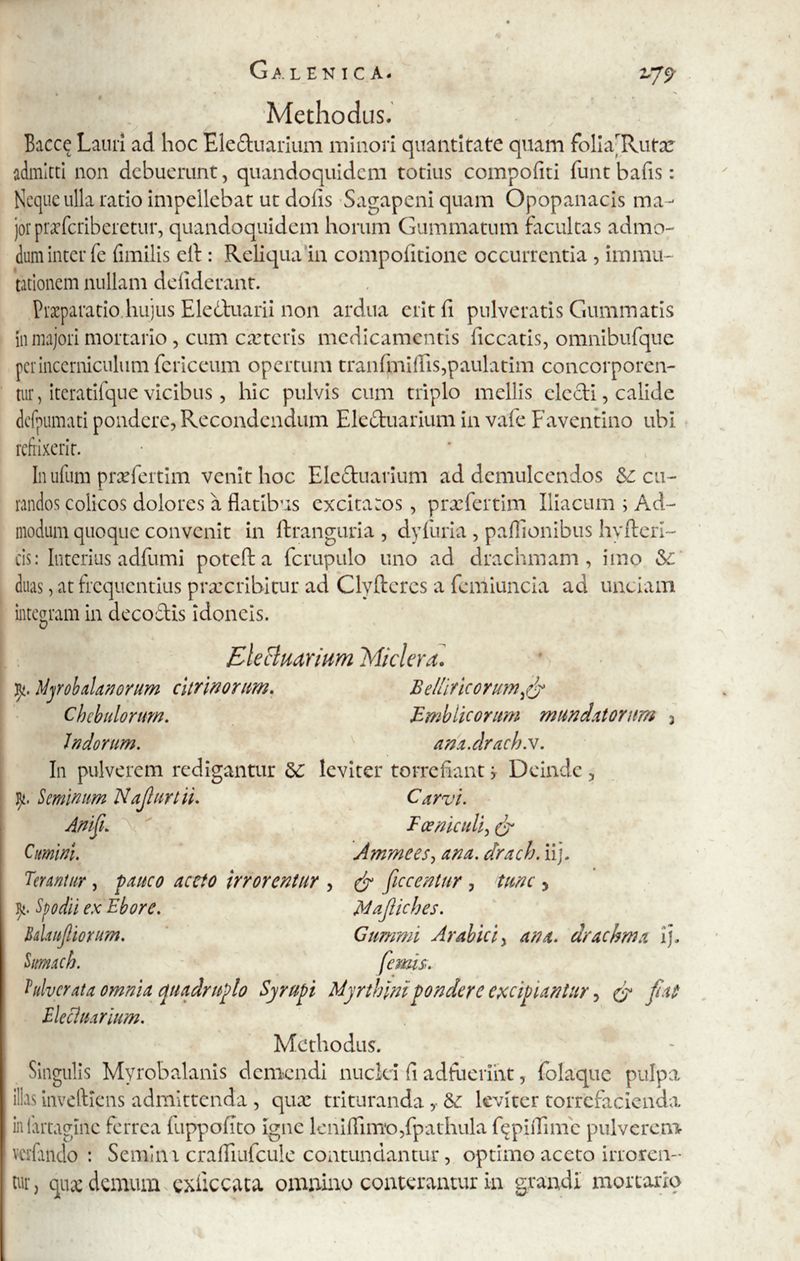 GALENICA. 279
Methodus.
Baccę Lauri ad hoc Electuarium minori quantitate quam folia Rutæ
admitti non debuerunt, quandoquidem totius compositi sunt basis:
Neque ulla ratio impellebat ut dosis Sagapeni quam Opopanacis ma-
jor præscriberetur, quandoquidem horum Gummatum facultas admo-
dum inter se similis est: Reliqua in compositione occurrentia, immu-
tationem nullam desiderant.
Præparatio hujus Electuarii non ardua erit si pulveratis Gummatis
in majori mortario, cum cæteris medicamentis siccatis, omnibusque
per incerniculum sericeum opertum transmissis, paulatim concorporen-
tur, iteratisque vicibus, hic pulvis cum triplo mellis electi, calide
despumati pondere, Recondendum Electuarium in vase Faventino ubi
refrixerit.
In usum præsertim venit hoc Electuarium ad demulcendos & cu-
randos colicos dolores à flatibus excitatos, præsertim Iliacum; Ad-
modum quoque convenit in stranguria, dysuria, passionibus hysteri-
cis: Interius adsumi potest a scrupulo uno ad drachmam, imo &
duas, at frequentius præcribitur ad Clysteres a semiuncia ad unciam
integram in decoctis idoneis.
Electuarium Miclera.
℞. Myrobalanorum citrinorum. Belliricorum, &
Chebulorum. Emblicorum mundatorum,
Indorum. ana. drach. v.
In pulverem redigantur & leviter torrefiant; Deinde,
℞. Seminum Nasturtii. Carvi.
Anisi. Fœniculi, &
Cumini. Ammees, ana. drach. iij.
Terantur, pauco aceto irrorentur, & siccentur, tunc,
℞. Spodii ex Ebore. Mastiches.
Balaustiorum. Gummi Arabici, ana. drachma ij.
Sumach. semis.
Pulverata omnia quadruplo Syrupi Myrthini pondere excipiantur, & fiat
Electuarium.
Methodus.
Singulis Myrobalanis demendi nuclei si adfuerint, solaque pulpa
illas investiens admittenda, quæ trituranda, & leviter torrefacienda
in sartagine ferrea supposito igne lenissimo, spathula sępissime pulverem
versando: Semina crassiuscule contundantur, optimo aceto irroren-
tur, quæ demum exsiccata omnino conterantur in grandi mortario